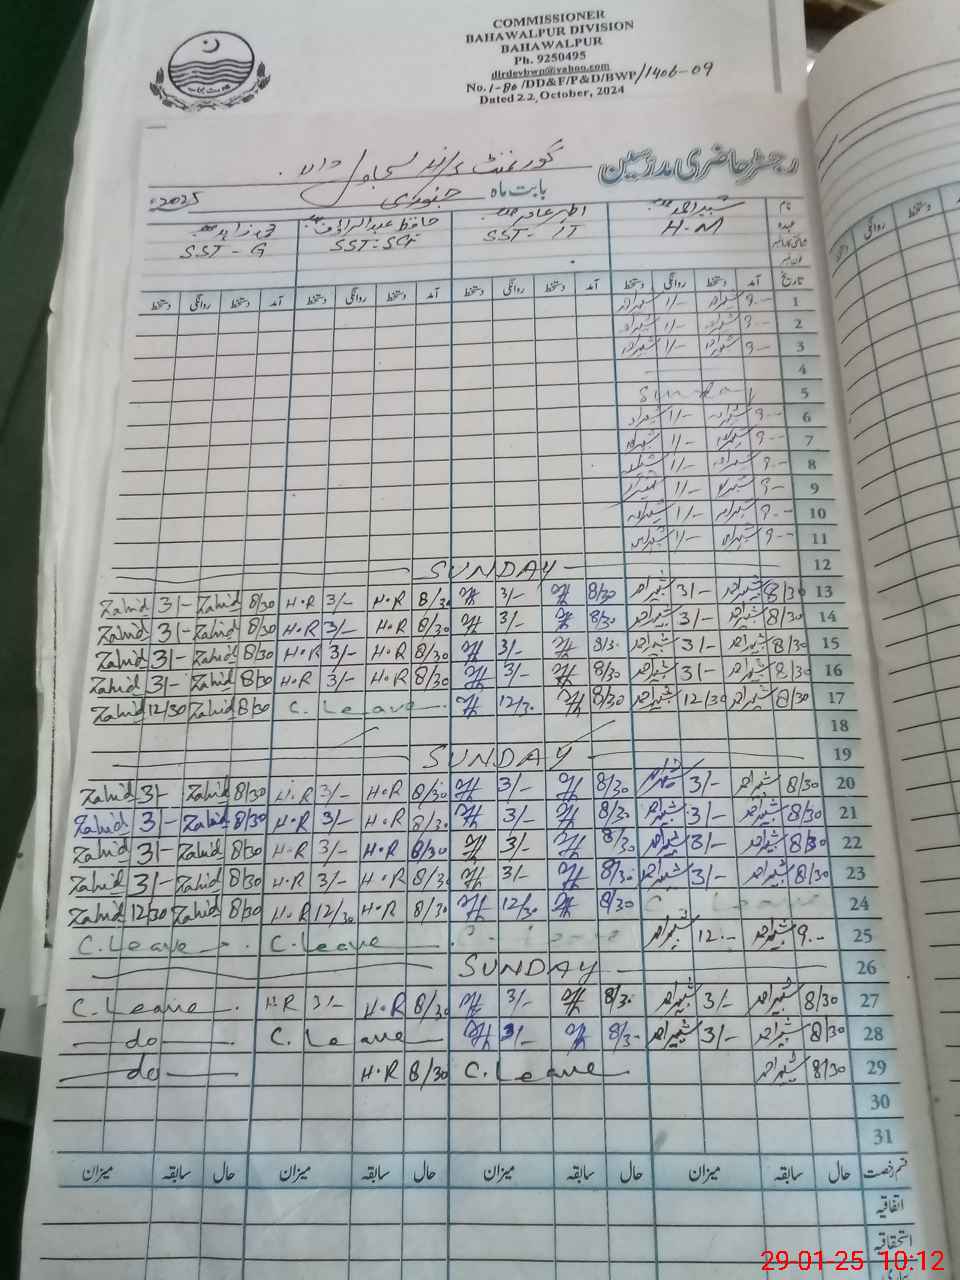 COMMISSIONER
BAHAWALPUR DIVISION
BAHAWALPUR
Ph. 9250495
dirdevbwp@yahoo.com
No. 1-80/DD&F/P&D/BWP/1406-09
Dated 22, October, 2024
رجسٹر حاضری مدرسین گورنمنٹ
بابت ماہ جنوری 2025ء
نام شبیر احمد حافظ عبدالرؤف محمد زاہد
عہدہ H.M SST-IT SST-Sci SST-G
تاریخ آمد دستخط روانگی دستخط آمد دستخط روانگی دستخط آمد دستخط روانگی دستخط آمد دستخط روانگی دستخط
1 9-- شبیر احمد 1/- شبیر احمد
2 9-- شبیر احمد 1/- شبیر احمد
3 9-- شبیر احمد 1/- شبیر احمد
4
5 Sunday
6 9-- شبیر احمد 1/- شبیر احمد
7 9-- شبیر احمد 1/- شبیر احمد
8 9-- شبیر احمد 1/- شبیر احمد
9 9-- شبیر احمد 1/- شبیر احمد
10 9-- شبیر احمد 1/- شبیر احمد
11 9-- شبیر احمد 1/- شبیر احمد
SUNDAY 12
Zahid 3/- Zahid 8/30 H.R 3/- H.R 8/30 3/- 8/30 شبیر احمد 3/- شبیر احمد 8/30 13
Zahid 3/- Zahid 8/30 H.R 3/- H.R 8/30 3/- 8/30 شبیر احمد 3/- شبیر احمد 8/30 14
Zahid 3/- Zahid 8/30 H.R 3/- H.R 8/30 3/- 8/30 شبیر احمد 3/- شبیر احمد 8/30 15
Zahid 3/- Zahid 8/30 H.R 3/- H.R 8/30 3/- 8/30 شبیر احمد 3/- شبیر احمد 8/30 16
Zahid 12/30 Zahid 8/30 C. Leave 12/30 8/30 شبیر احمد 12/30 شبیر احمد 8/30 17
18
SUNDAY 19
Zahid 3/- Zahid 8/30 H.R 3/- H.R 8/30 3/- 8/30 شبیر احمد 3/- شبیر احمد 8/30 20
Zahid 3/- Zahid 8/30 H.R 3/- H.R 8/30 3/- 8/30 شبیر احمد 3/- شبیر احمد 8/30 21
Zahid 3/- Zahid 8/30 H.R 3/- H.R 8/30 3/- 8/30 شبیر احمد 3/- شبیر احمد 8/30 22
Zahid 3/- Zahid 8/30 H.R 3/- H.R 8/30 3/- 8/30 شبیر احمد 3/- شبیر احمد 8/30 23
Zahid 12/30 Zahid 8/30 H.R 12/30 H.R 8/30 12/30 8/30 C. Leave 24
C. Leave C. Leave C. Leave شبیر احمد 12-- شبیر احمد 9-- 25
SUNDAY 26
C. Leave H.R 3/- H.R 8/30 3/- 8/30 شبیر احمد 3/- شبیر احمد 8/30 27
do C. Leave 3/- 8/30 شبیر احمد 3/- شبیر احمد 8/30 28
do H.R 8/30 C. Leave شبیر احمد 8/30 29
30
31
قسم رخصت حال سابقہ میزان حال سابقہ میزان حال سابقہ میزان حال سابقہ میزان
اتفاقیہ
استحقاقیہ
29-01-25 10:12